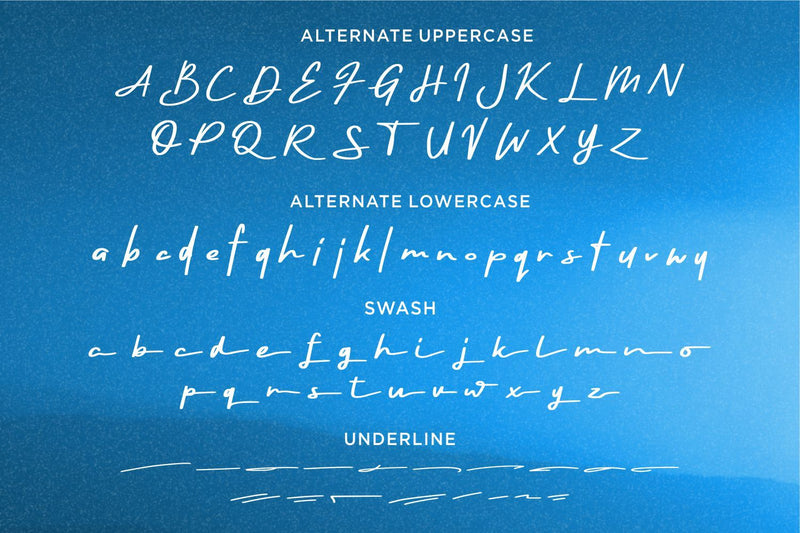 ALTERNATE UPPERCASE
A B C D E F G H I J K L M N
O P Q R S T U V W X Y Z
ALTERNATE LOWERCASE
a b c d e f g h i j k l m n o p q r s t u v w y
SWASH
a b c d e f g h i j k l m n o
p q r s t u v w x y z
UNDERLINE